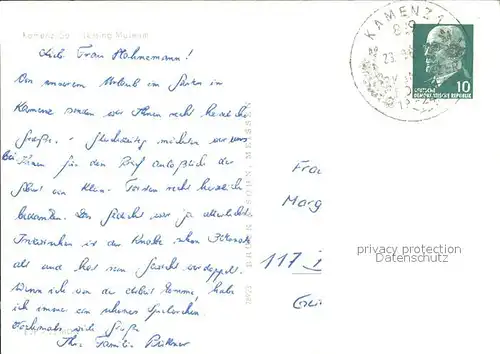 Kamenz Sa Lessing Museum
Liebe Frau Hahnemann!
Von unserem Urlaub im Garten in
Kamenz senden wir Ihnen recht herzliche
Grüße. Gleichzeitig möchten wir uns
bei Ihnen für den Brief anläßlich der
Geburt von Klein Torsten recht herzlich
bedanken. Das Gedicht war ja allerliebst.
Inzwischen ist der Knabe schon Monate
alt und hat sein Gewicht verdoppelt.
Wenn ich von der Arbeit komme, habe
ich immer ein schönes
Nochmals viele Grüße
Ihre Familie Büttner
BRÜCK & SOHN, MEISSEN
KAMENZ 1
DEUTSCHE
DEMOKRATISCHE REPUBLIK
10
Frau
Marg
117
privacy protection
Datenschutz